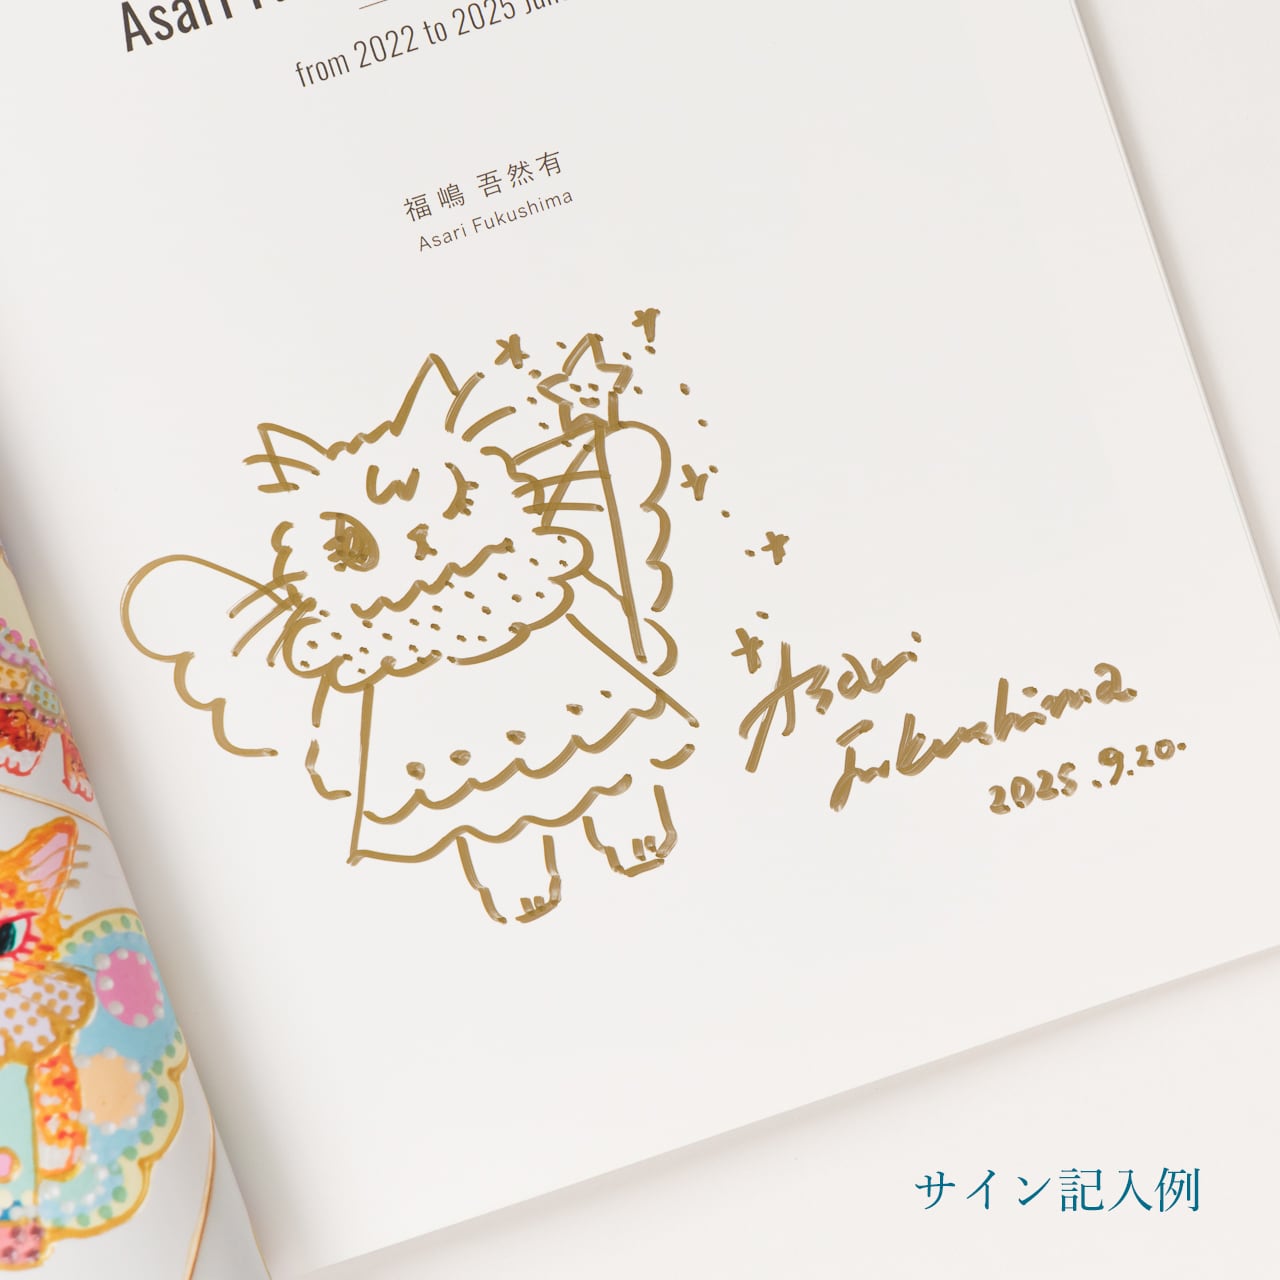 Asari
from 2022 to 2025
福嶋 吾然有
Asari Fukushima
Asari
Fukushima
2025.9.20.
サイン記入例